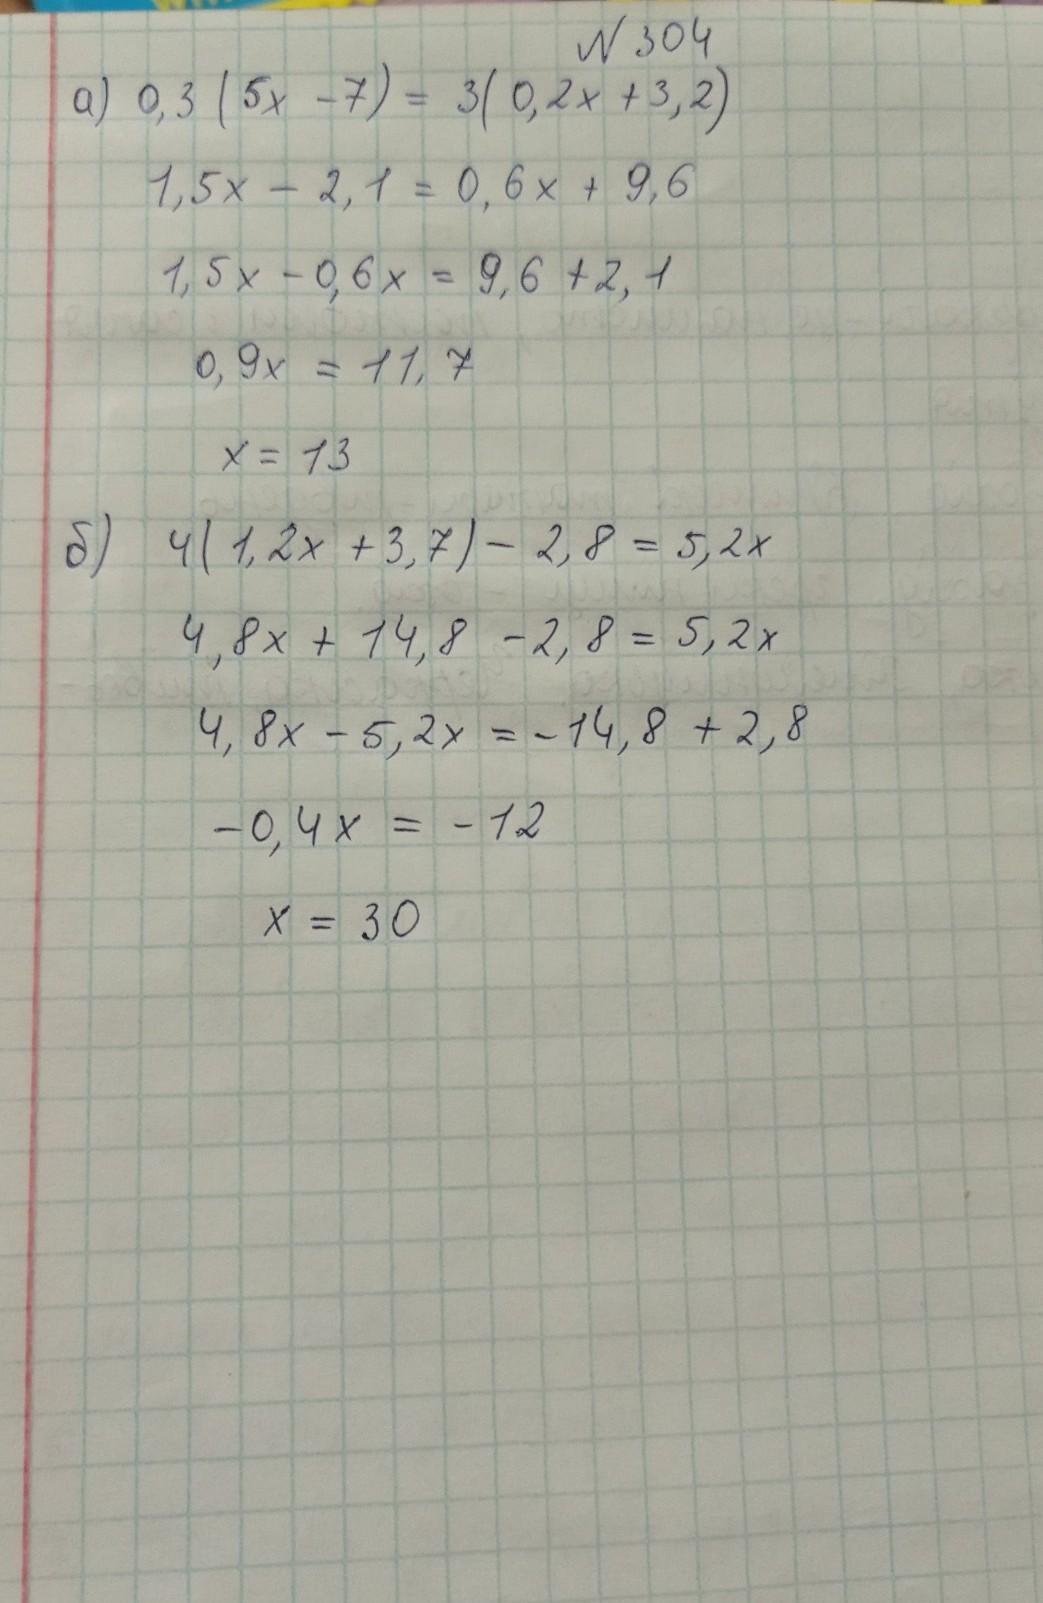 N 304
а) 0,3 (5x - 7) = 3(0,2x + 3,2)
1,5x - 2,1 = 0,6x + 9,6
1,5x - 0,6x = 9,6 + 2,1
0,9x = 11,7
x = 13
б) 4(1,2x + 3,7) - 2,8 = 5,2x
4,8x + 14,8 - 2,8 = 5,2x
4,8x - 5,2x = -14,8 + 2,8
-0,4x = -12
x = 30